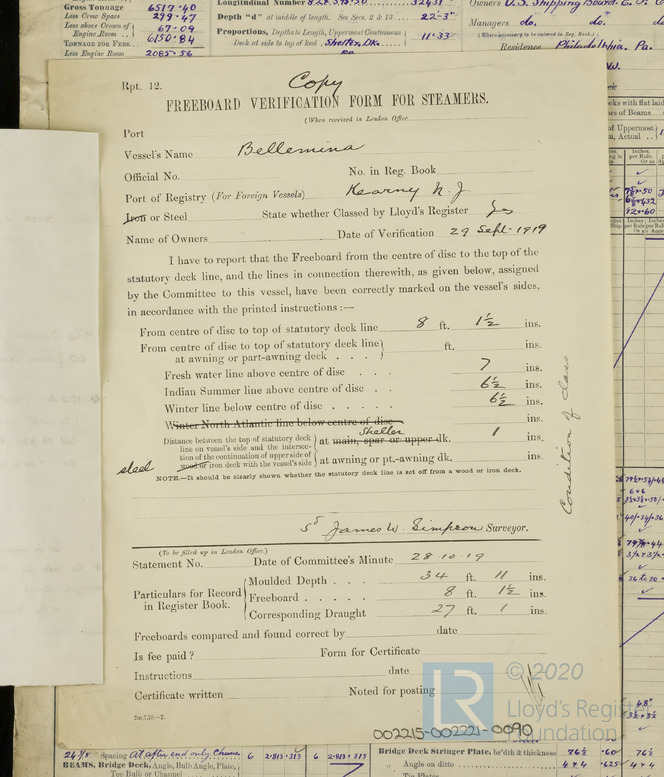 Gross Tonnage 6517.40
Less Crew Space 299.47
Less above Crown of Engine Room 67.09
6150.84
TONNAGE FOR FEES
2085.56
Longitudinal Number
32431
Depth "d" at middle of length. See Secs. 2 & 13 22-3"
Proportions, Depths to Length, Uppermost Continuous
Deck at side to top of keel Shelter Dk. 11.33
Owners U.S. Shipping Board
Managers do. do.
(Where necessary to be entered in Reg. Book.)
Residence Philadelphia. Pa.
Copy
Rpt. 12.
FREEBOARD VERIFICATION FORM FOR STEAMERS.
(When received in London Office
Port
Vessel's Name Bellemina
Official No. No. in Reg. Book
Port of Registry (For Foreign Vessels) Kearny N.J
Iron or Steel State whether Classed by Lloyd's Register Yes
Name of Owners Date of Verification 29 Sept-1919
I have to report that the Freeboard from the centre of disc to the top of the
statutory deck line, and the lines in connection therewith, as given below, assigned
by the Committee to this vessel, have been correctly marked on the vessel's sides,
in accordance with the printed instructions :—
From centre of disc to top of statutory deck line 8 ft. 1½ ins.
From centre of disc to top of statutory deck line
at awning or part-awning deck . . . ft. ins.
Fresh water line above centre of disc . . . 7 ins.
Indian Summer line above centre of disc . . 6½ ins.
Winter line below centre of disc . . . . . 6½ ins.
Winter North Atlantic line below centre of disc ins.
Shelter
Distance between the top of statutory deck
line on vessel's side and the intersec-
tion of the continuation of upper side of
wood or iron deck with the vessel's side
at main, spar or upper dk. 1 ins.
at awning or pt.-awning dk. ins.
steel
NOTE.—It should be clearly shown whether the statutory deck line is set off from a wood or iron deck.
Condition of class
sd James W. Simpson Surveyor.
(To be filled up in London Office.)
Statement No. Date of Committee's Minute 28.10.19
Particulars for Record in Register Book.
Moulded Depth . . . . 34 ft. 11 ins.
Freeboard . . . . . 8 ft. 1½ ins.
Corresponding Draught 27 ft. 1 ins.
Freeboards compared and found correct by date
Is fee paid ? Form for Certificate
Instructions date
Certificate written Noted for posting
2m,7,19.-T.
LR © 2020
Lloyd's Register
Foundation
002215-002221-0090
24⅜ Spacing at after end only
BEAMS, Bridge Deck, Angle, Bulb Angle, Plate,
Tee Bulb or Channel
Bridge Deck Stringer Plate, br'dth & thickness 76½ .60 76½
Angle on ditto 4 x 4 .625